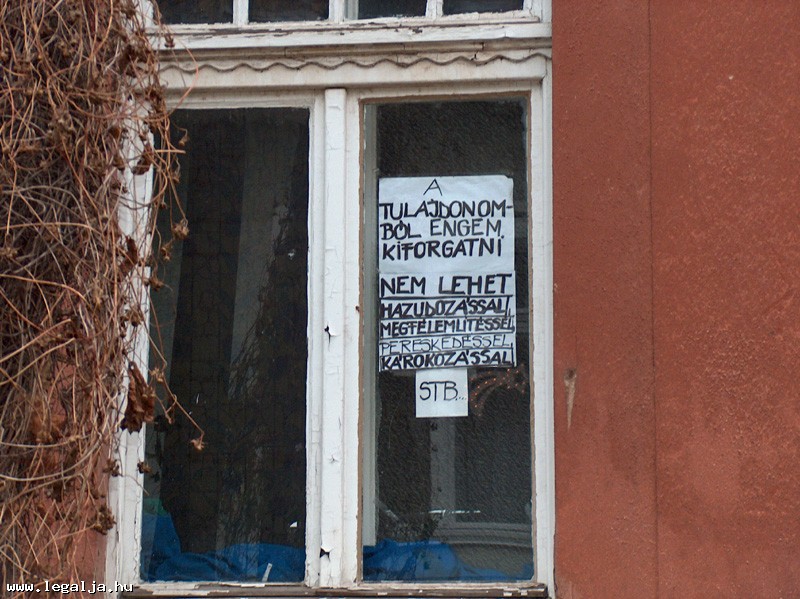 A
TULAJDONOM-
BÓL ENGEM,
KIFORGATNI
NEM LEHET
HAZUDOZÁSSAL,
MEGFÉLEMLÍTÉSSEL,
PERESKEDÉSSEL,
KÁROKOZÁSSAL
STB...
www.legalja.hu